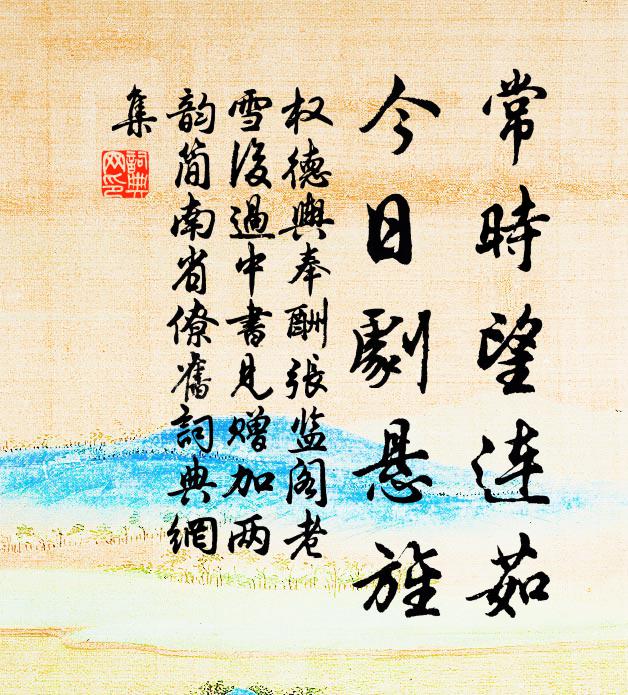 常時望連茹
今日劇悬旌
权德舆奉酬張监阁老
雪後過中書見赠加两
韵简南省僚舊詞典網
集
詞典網印